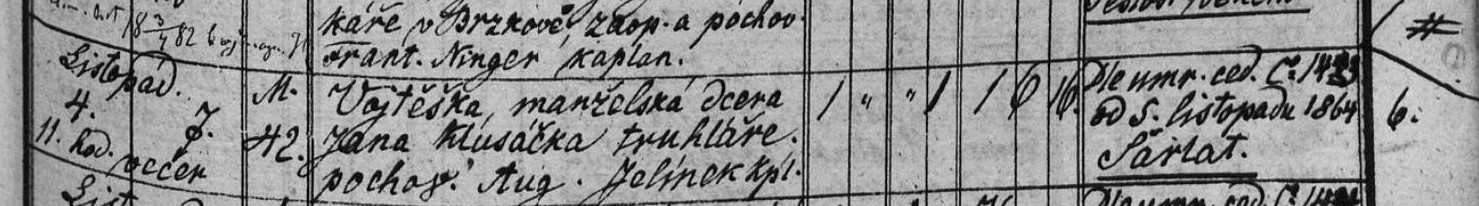 káře v Brzkově, zaop. a pochov.
Frant. Ninger kaplan.
Listopád.
4. 7.
11. hod. večer
M.
42.
Vojtěška, manželská dcera
Jana Klusáčka truhláře.
pochov. Aug. Jelínek kpl.
1 " " 1 1 6 16.
Dle umr. ced. Č. 1483
od 5. listopadu 1864
Šarlat.
6.
#